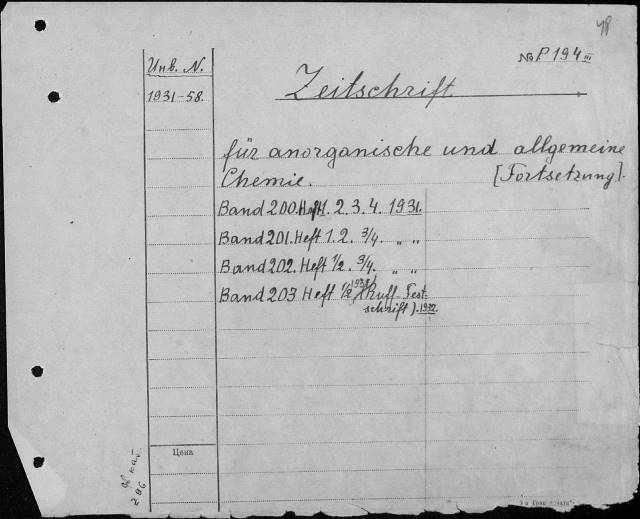 48
Инв. N.
№ P 194 III
1931-58.
Zeitschrift
für anorganische und allgemeine
Chemie. [Fortsetzung].
Band 200. Heft 1. 2. 3. 4. 1931.
Band 201. Heft 1. 2. 3/4. „ „
Band 202. Heft 1/2. 3/4. „ „
Band 203 Heft 1/2 (Ruff-Fest-
schrift). 1932.
Цена
286